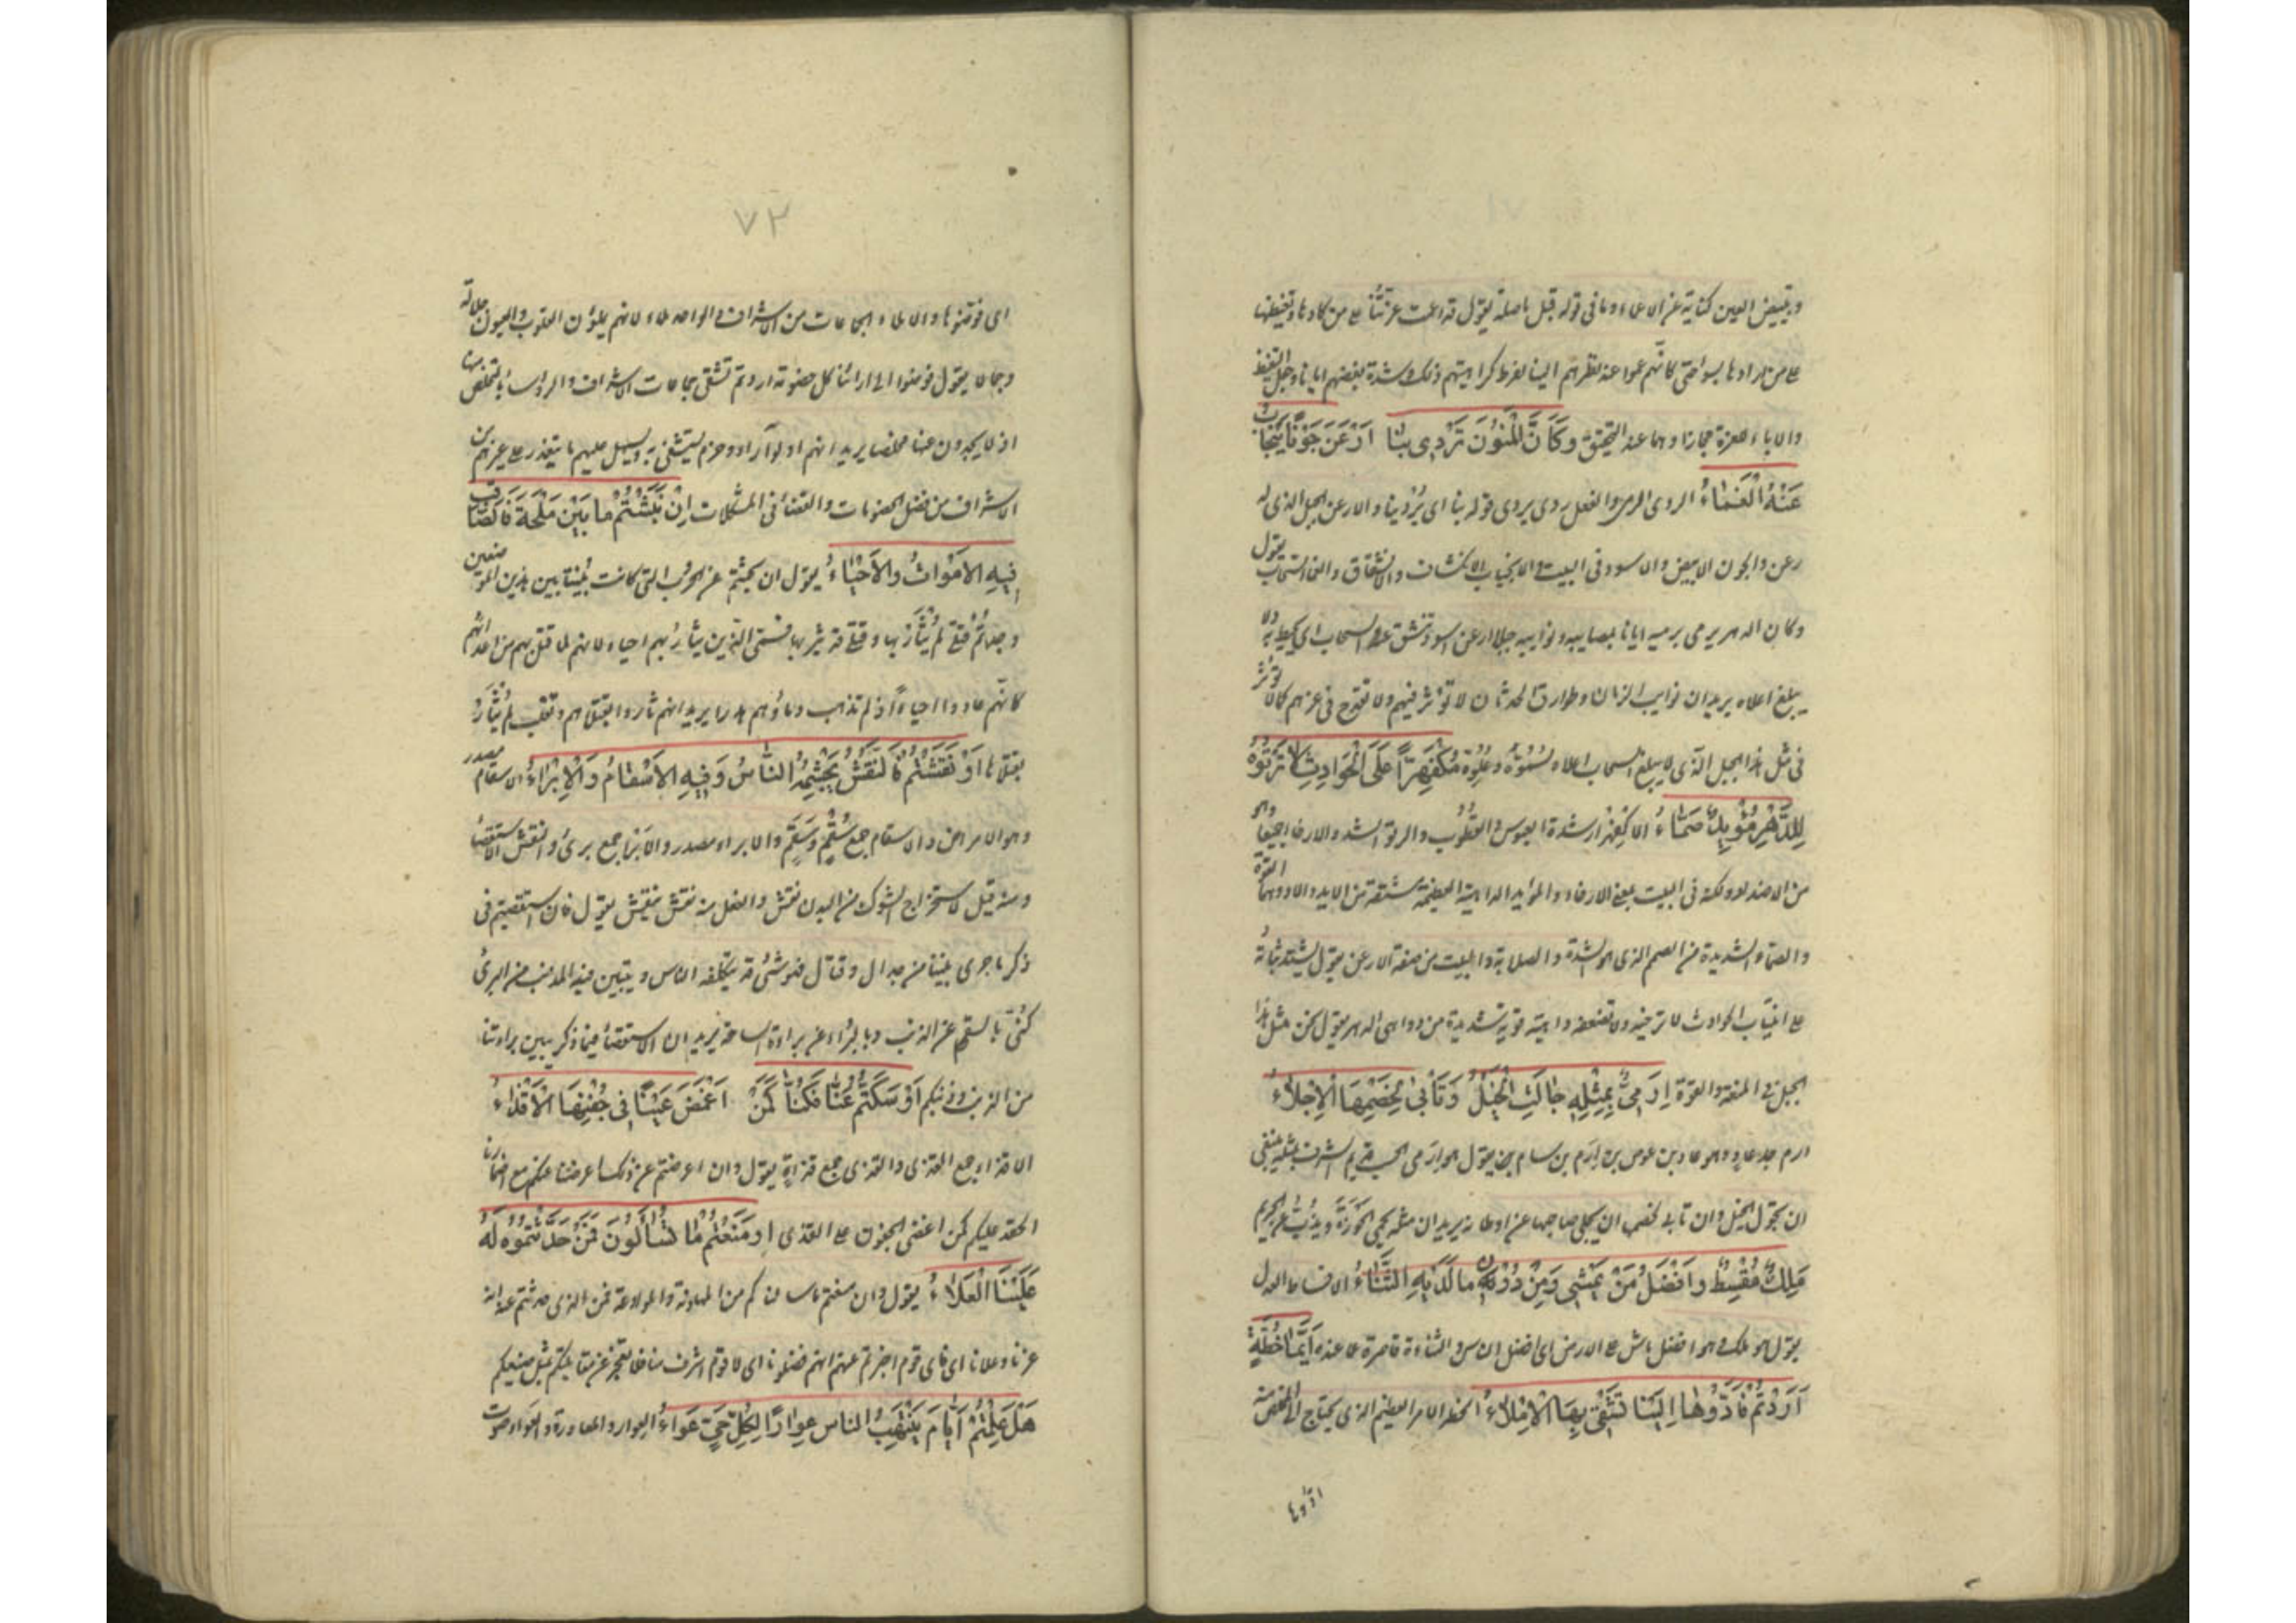 وتبييض العين كناية عن الاعماء وما في قوله قبل ما صلة يقول قد اعمت عزتنا على من كادها وتغيظها
على من ارادها بسوء حتى كانهم عموا عند نظرهم الينا لفرط كراهيتهم ذلك وشدة بغضهم ايانا وجعل التغيظ
والاباء للعزة مجازا وهما عند التحقيق وَكَأَنَّ الْمَنُونَ تَرْدِي بِنَا أَرْعَنَ جَوْنًا يَنْجَابُ
عَنْهُ الْعَمَاءُ الردي الرمي والفعل ردى يردي قوله بنا اي تردينا والارعن الجبل الذي له
رعن والجون الابيض والاسود في البيت والانجياب الانكشاف والانشقاق والعماء السحاب يقول
وكان الدهر يرمي برميه ايانا بمصايبه ونوايبه جبلا ارعن اسود تنشق عنه السحاب اي يحيط به ولا
يبلغ اعلاه يريد ان نوايب الزمان وطوارق الحدثان لا توثر فيهم ولا تقدح في عزهم كما لا توثر
في مثل هذا الجبل الذي لا يبلغ السحاب اعلاه لسموه وعلوه مُكْفَهِرًّا عَلَى الْحَوَادِثِ لَا تَرْتُوهُ
لِلدَّهْرِ مُؤْيِدٌ صَمَّاءُ الاكفهرار شدة العبوس والقطوب والرتو الشد والارخاء جميعا وهو
من الاضداد ولكنه في البيت بمعنى الارخاء والمؤيد الداهية العظيمة مشتقة من الايد والاد وهما القوة
والصماء الشديدة من الصمم الذي هو الشدة والصلابة والبيت من صفة الارعن يقول يشتد ثباته
على انتياب الحوادث لا ترخيه ولا تضعفه داهية قوية شديدة من دواهي الدهر يقول نحن مثل هذا
الجبل في المنعة والقوة إِرَمِيٌّ بِمِثْلِهِ جَالَتِ الْخَيْلُ وَتَأْبَى لِخَصْمِهَا الْإِجْلَاءُ
ارم جد عاد وهو عاد بن عوص بن ارم بن سام يقول هو ارمي الحسب قديم الشرف بمثله ينبغي
ان تجول الخيل وان تابى لخصمها ان يجلي صاحبها عن اوطانه يريد ان مثله يحمي الحوزة ويذب عن الحريم
مَلِكٌ مُقْسِطٌ وَأَفْضَلُ مَنْ يَمْشِي وَمِنْ دُونِ مَا لَدَيْهِ الثَّنَاءُ الاقساط العدل
يقول هو ملك وهو افضل ماش على الارض اي افضل الناس والثناء قاصرة عما عنده أَيُّمَا خُطَّةٍ
أَرَدْتُمْ فَأَدُّوهَا إِلَيْنَا تَشْفَى بِهَا الْأَمْلَاءُ الخطة الامر العظيم الذي يحتاج الى المخلص منه
ادوها
٧٢
اي فوضوها والاملاء الجماعات من الاشراف الواحد ملاء لانهم يملؤن القلوب والعيون جلالة
وجمالا يقول فوضوا الى ارائنا كل خصومة اردتم تشفى بها جماعات الاشراف والروساء بالتخلص منها
اذ لا يجدون عنها مخلصا يريد انهم اولو آراء وحزم ليشتفي به ويسهل عليهم ما يتعذر على غيرهم من
الاشراف من فصل الخصومات والقضاء في المشكلات إِنْ نَبَشْتُمْ مَا بَيْنَ مِلْحَةَ فَالصَّاقِبِ
فِيهِ الْأَمْوَاتُ وَالْأَحْيَاءُ يقول ان بحثتم عن الحرب التي كانت بيننا بين هذين الموضعين
وجدتم قتلى لم يثأر بها وقتلى قد ثئر بها فسمى الذين يثأر بهم احياء لانهم لما قتل بهم من اعدائهم
كانهم عادوا احياء اذ لم تذهب دماؤهم هدرا يريد انهم ثاروا بقتلاهم وتغلب لم يثأر
بقتلاها أَوْ نَقَشْتُمْ فَالنَّقْشُ يَجْشَمُهُ النَّاسُ وَفِيهِ الْأَسْقَامُ وَالْإِبْرَاءُ الاسقام مصدر
وهو الامراض والاسقام جمع سُقْم وسَقَم والابراء مصدر والابراء جمع برئ والنقش الاستقصاء
ومنه قيل لاستخراج الشوك من البدن نقش والفعل منه نقش ينقش يقول فان استقصيتم في
ذكر ما جرى بيننا من جدال وقتال فهو شئ قد يتكلفه الناس ويتبين فيه المذنب من البرئ
كنى بالسقم عن الذنب وبالبراء عن براءة الساحة يريد ان الاستقصاء فيما ذكر يبين براءتنا
من الذنب وذنبكم أَوْ سَكَتُّمْ عَنَّا فَكُنَّا كَمَنْ أَغْمَضَ عَيْنًا فِي جَفْنِهَا الْأَقْذَاءُ
الاقذاء جمع القذى والقذى جمع قذاة يقول وان اعرضتم عن ذلك اعرضنا عنكم مع اضمارنا
الحقد عليكم كمن اغضى الجفون على القذى أَوْ مَنَعْتُمْ مَا تُسْأَلُونَ فَمَنْ حُدِّثْتُمُوهُ لَهُ
عَلَيْنَا الْعَلَاءُ يقول وان منعتم ما سالناكم من المهادنة والموادعة فمن الذي حدثتم عنه انه
عزنا وعلانا اي فاي قوم اخبرتم عنهم انهم فضلونا اي لا قوم اشرف منا فلا نعجز عن مقابلتكم بمثل صنيعكم
هَلْ عَلِمْتُمْ أَيَّامَ يُنْتَهَبُ النَّاسُ غِوَارًا لِكُلِّ حَيٍّ عُوَاءُ الغوار والمغاورة والعواء صوت